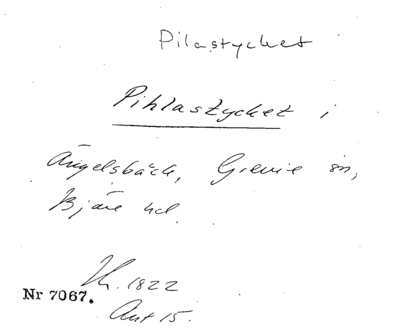 Pilastycket
Pihlastycket i
Ängelsbäck, Grevie sn,
Bjäre hd.
Lh. 1822
Nr 7067.
Akt 15.